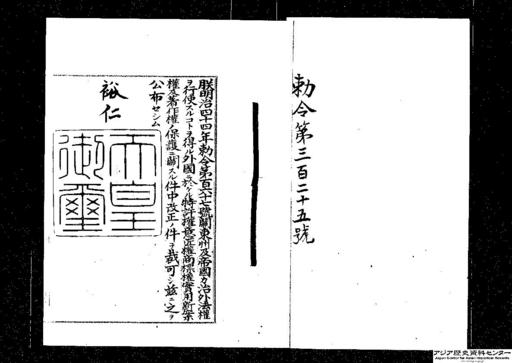 勅令第三百二十五號
朕明治四十四年勅令第百六十七號關東州及帝國カ治外法權
ヲ行使スルコトヲ得ル外國ニ於ケル特許權意匠權商標權實用新案
權及著作權ノ保護ニ關スル件中改正ノ件ヲ裁可シ茲ニ之ヲ
公布セシム
裕仁
天皇御璽
アジア歴史資料センター
Japan Center for Asian Historical Records